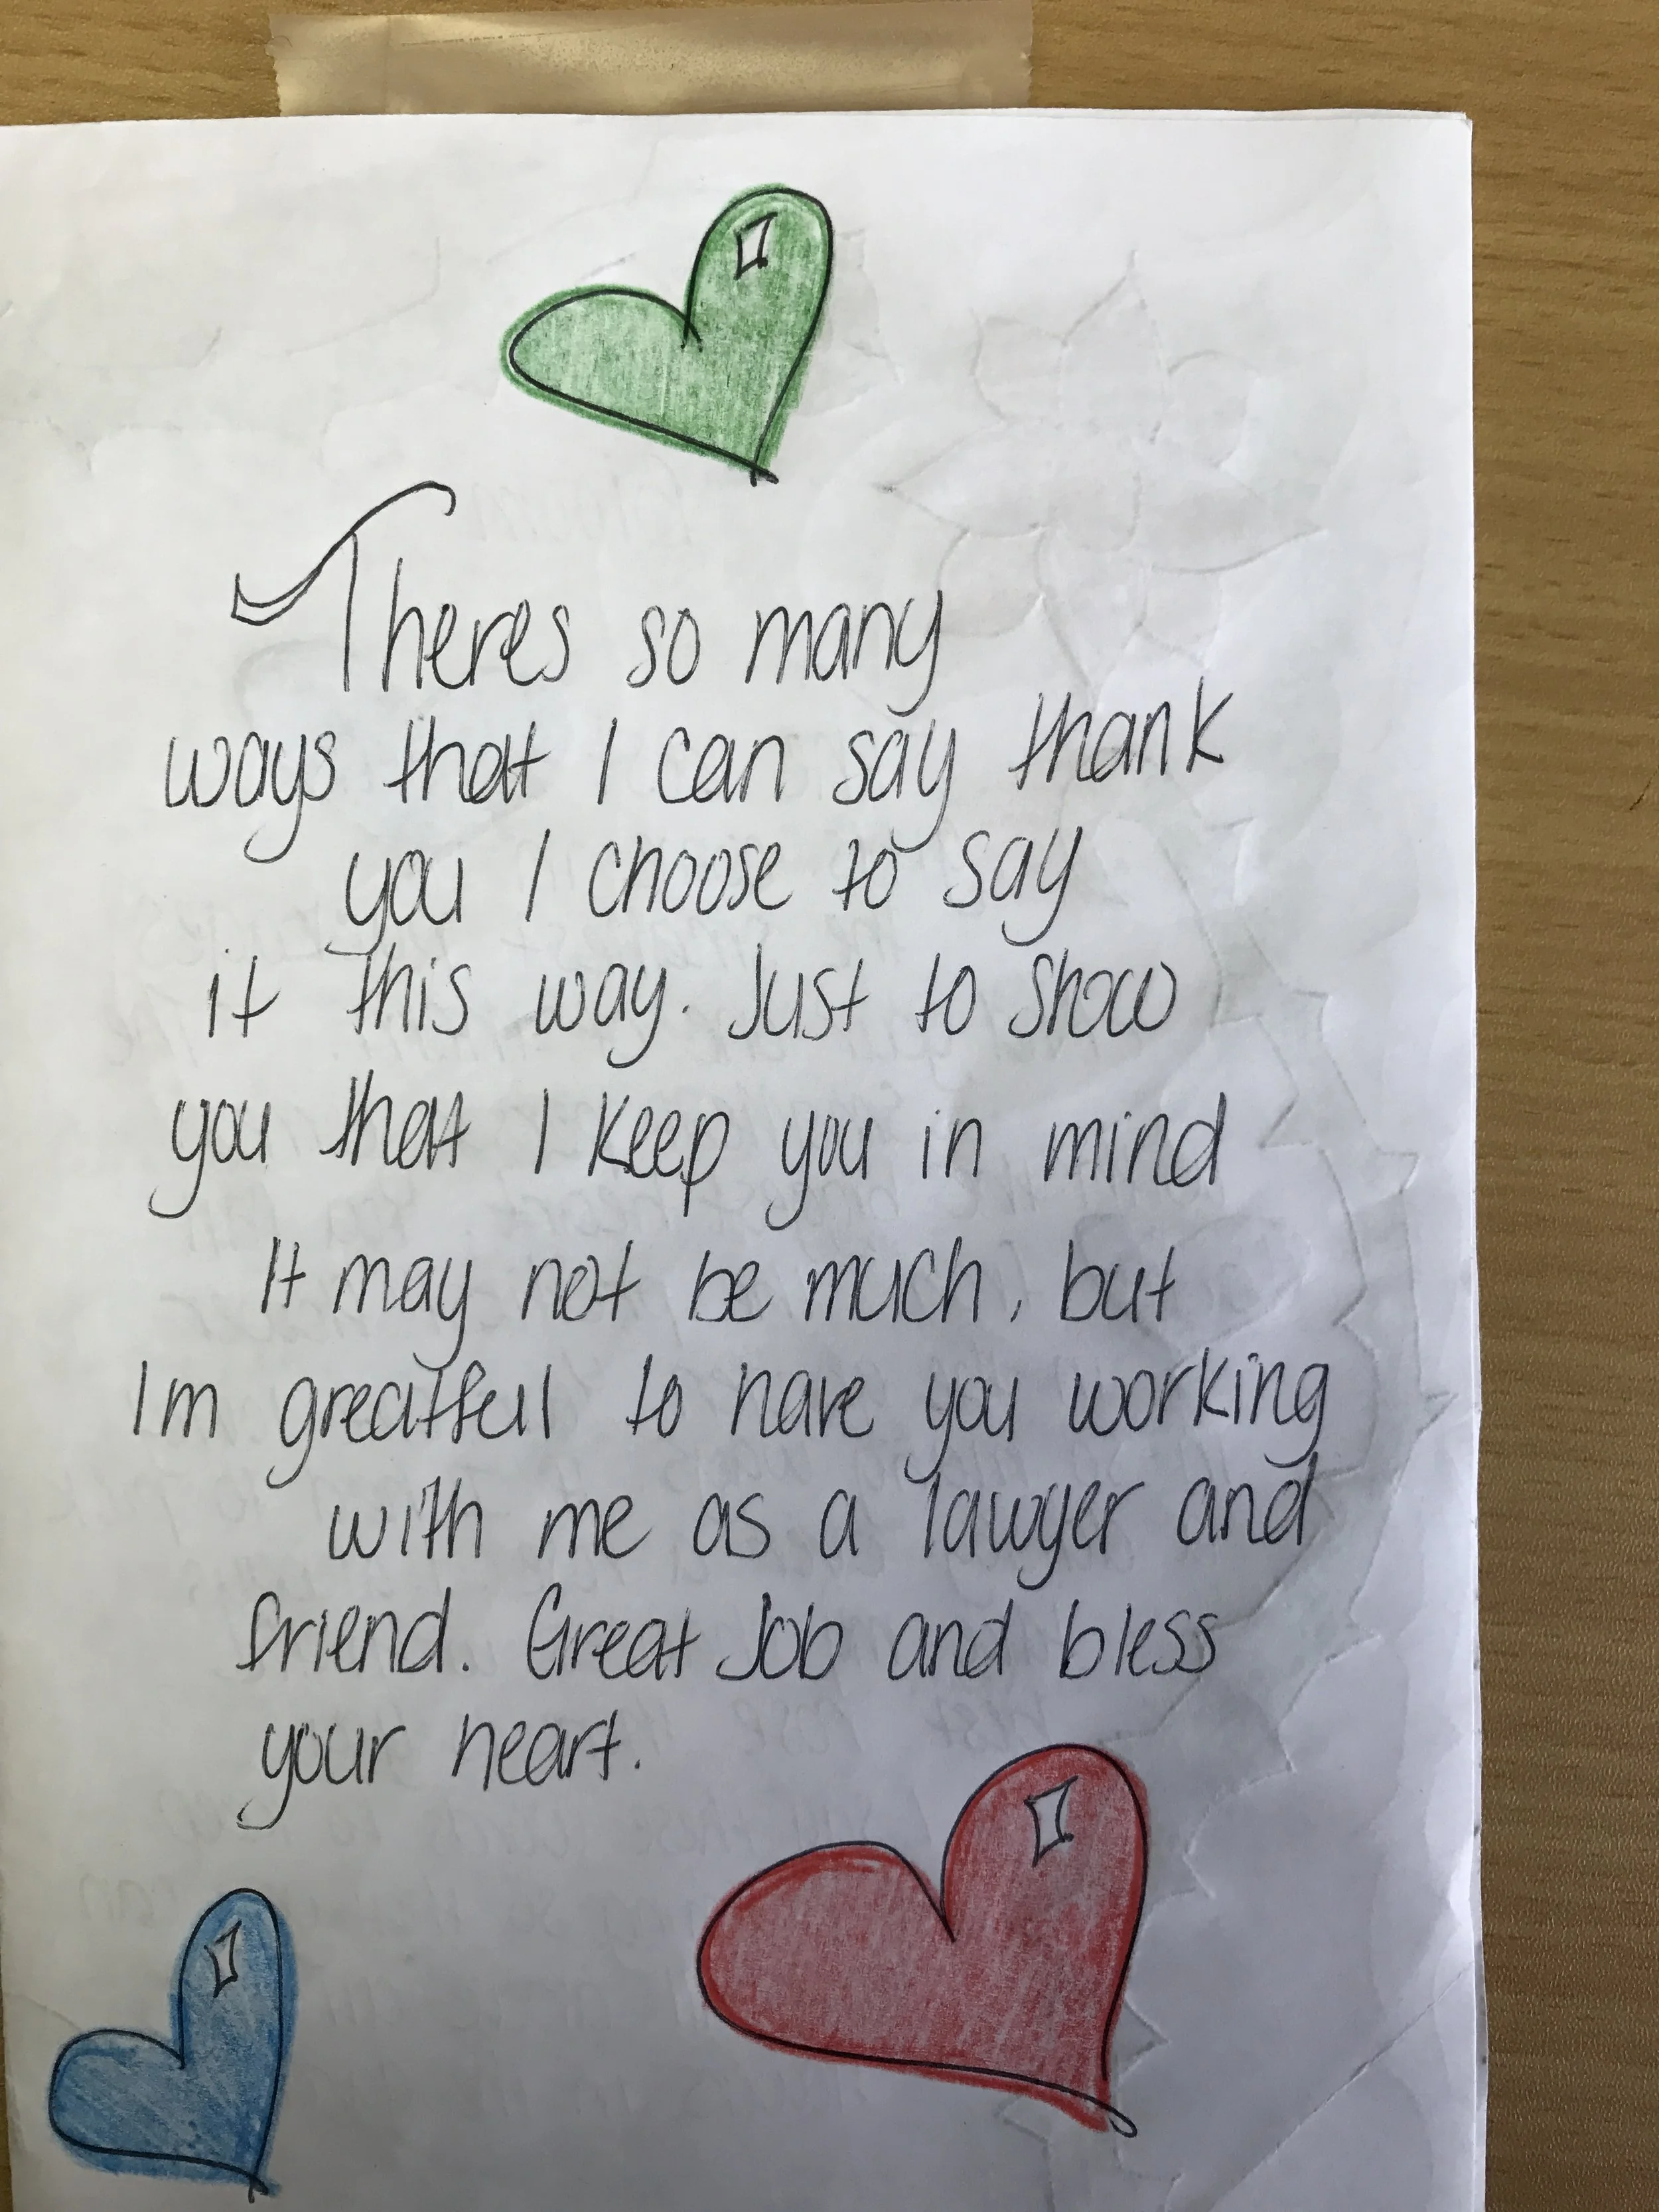 Theres so many
ways that I can say thank
you I choose to say
it this way. Just to show
you that I keep you in mind
It may not be much, but
Im greatfull to have you working
with me as a lawyer and
friend. Great Job and bless
your heart.